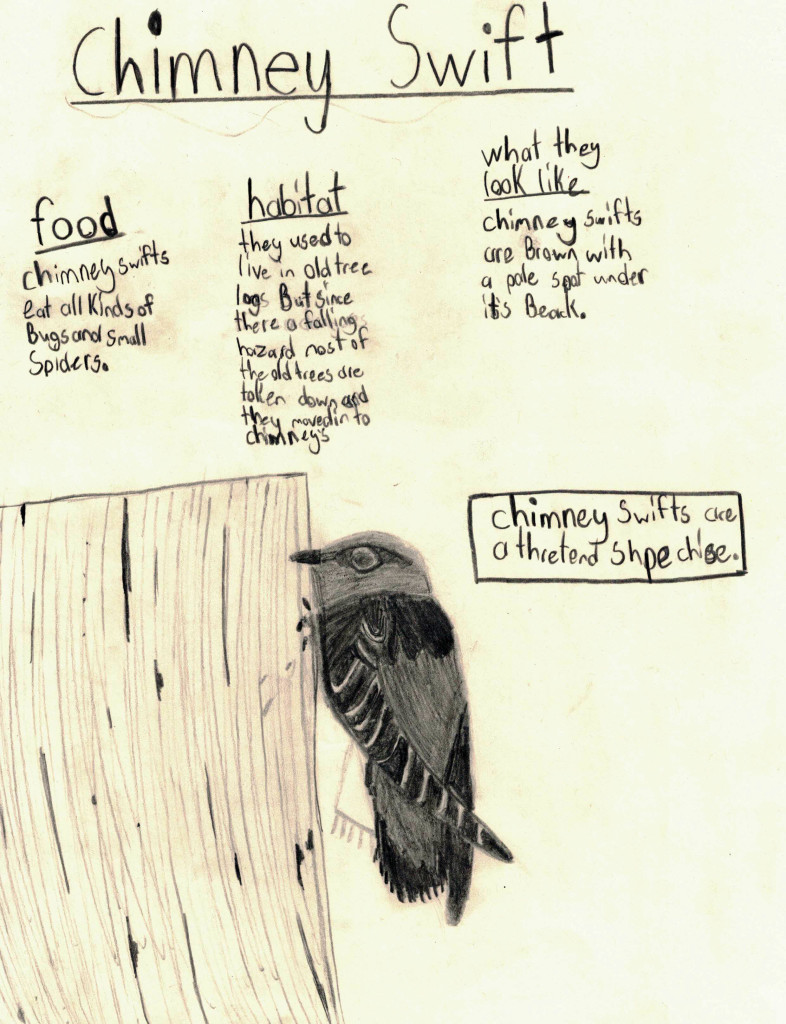 Chimney Swift
food
chimney swifts
eat all Kinds of
Bugs and small
Spiders.
habitat
they used to
live in old tree
logs But since
there a falling
hazard most of
the old trees are
taken down and
they moved in to
chimney's
what they
look like
chimney swifts
are Brown with
a pale spot under
it's Beack.
chimney swifts are
a thretend shpechise.